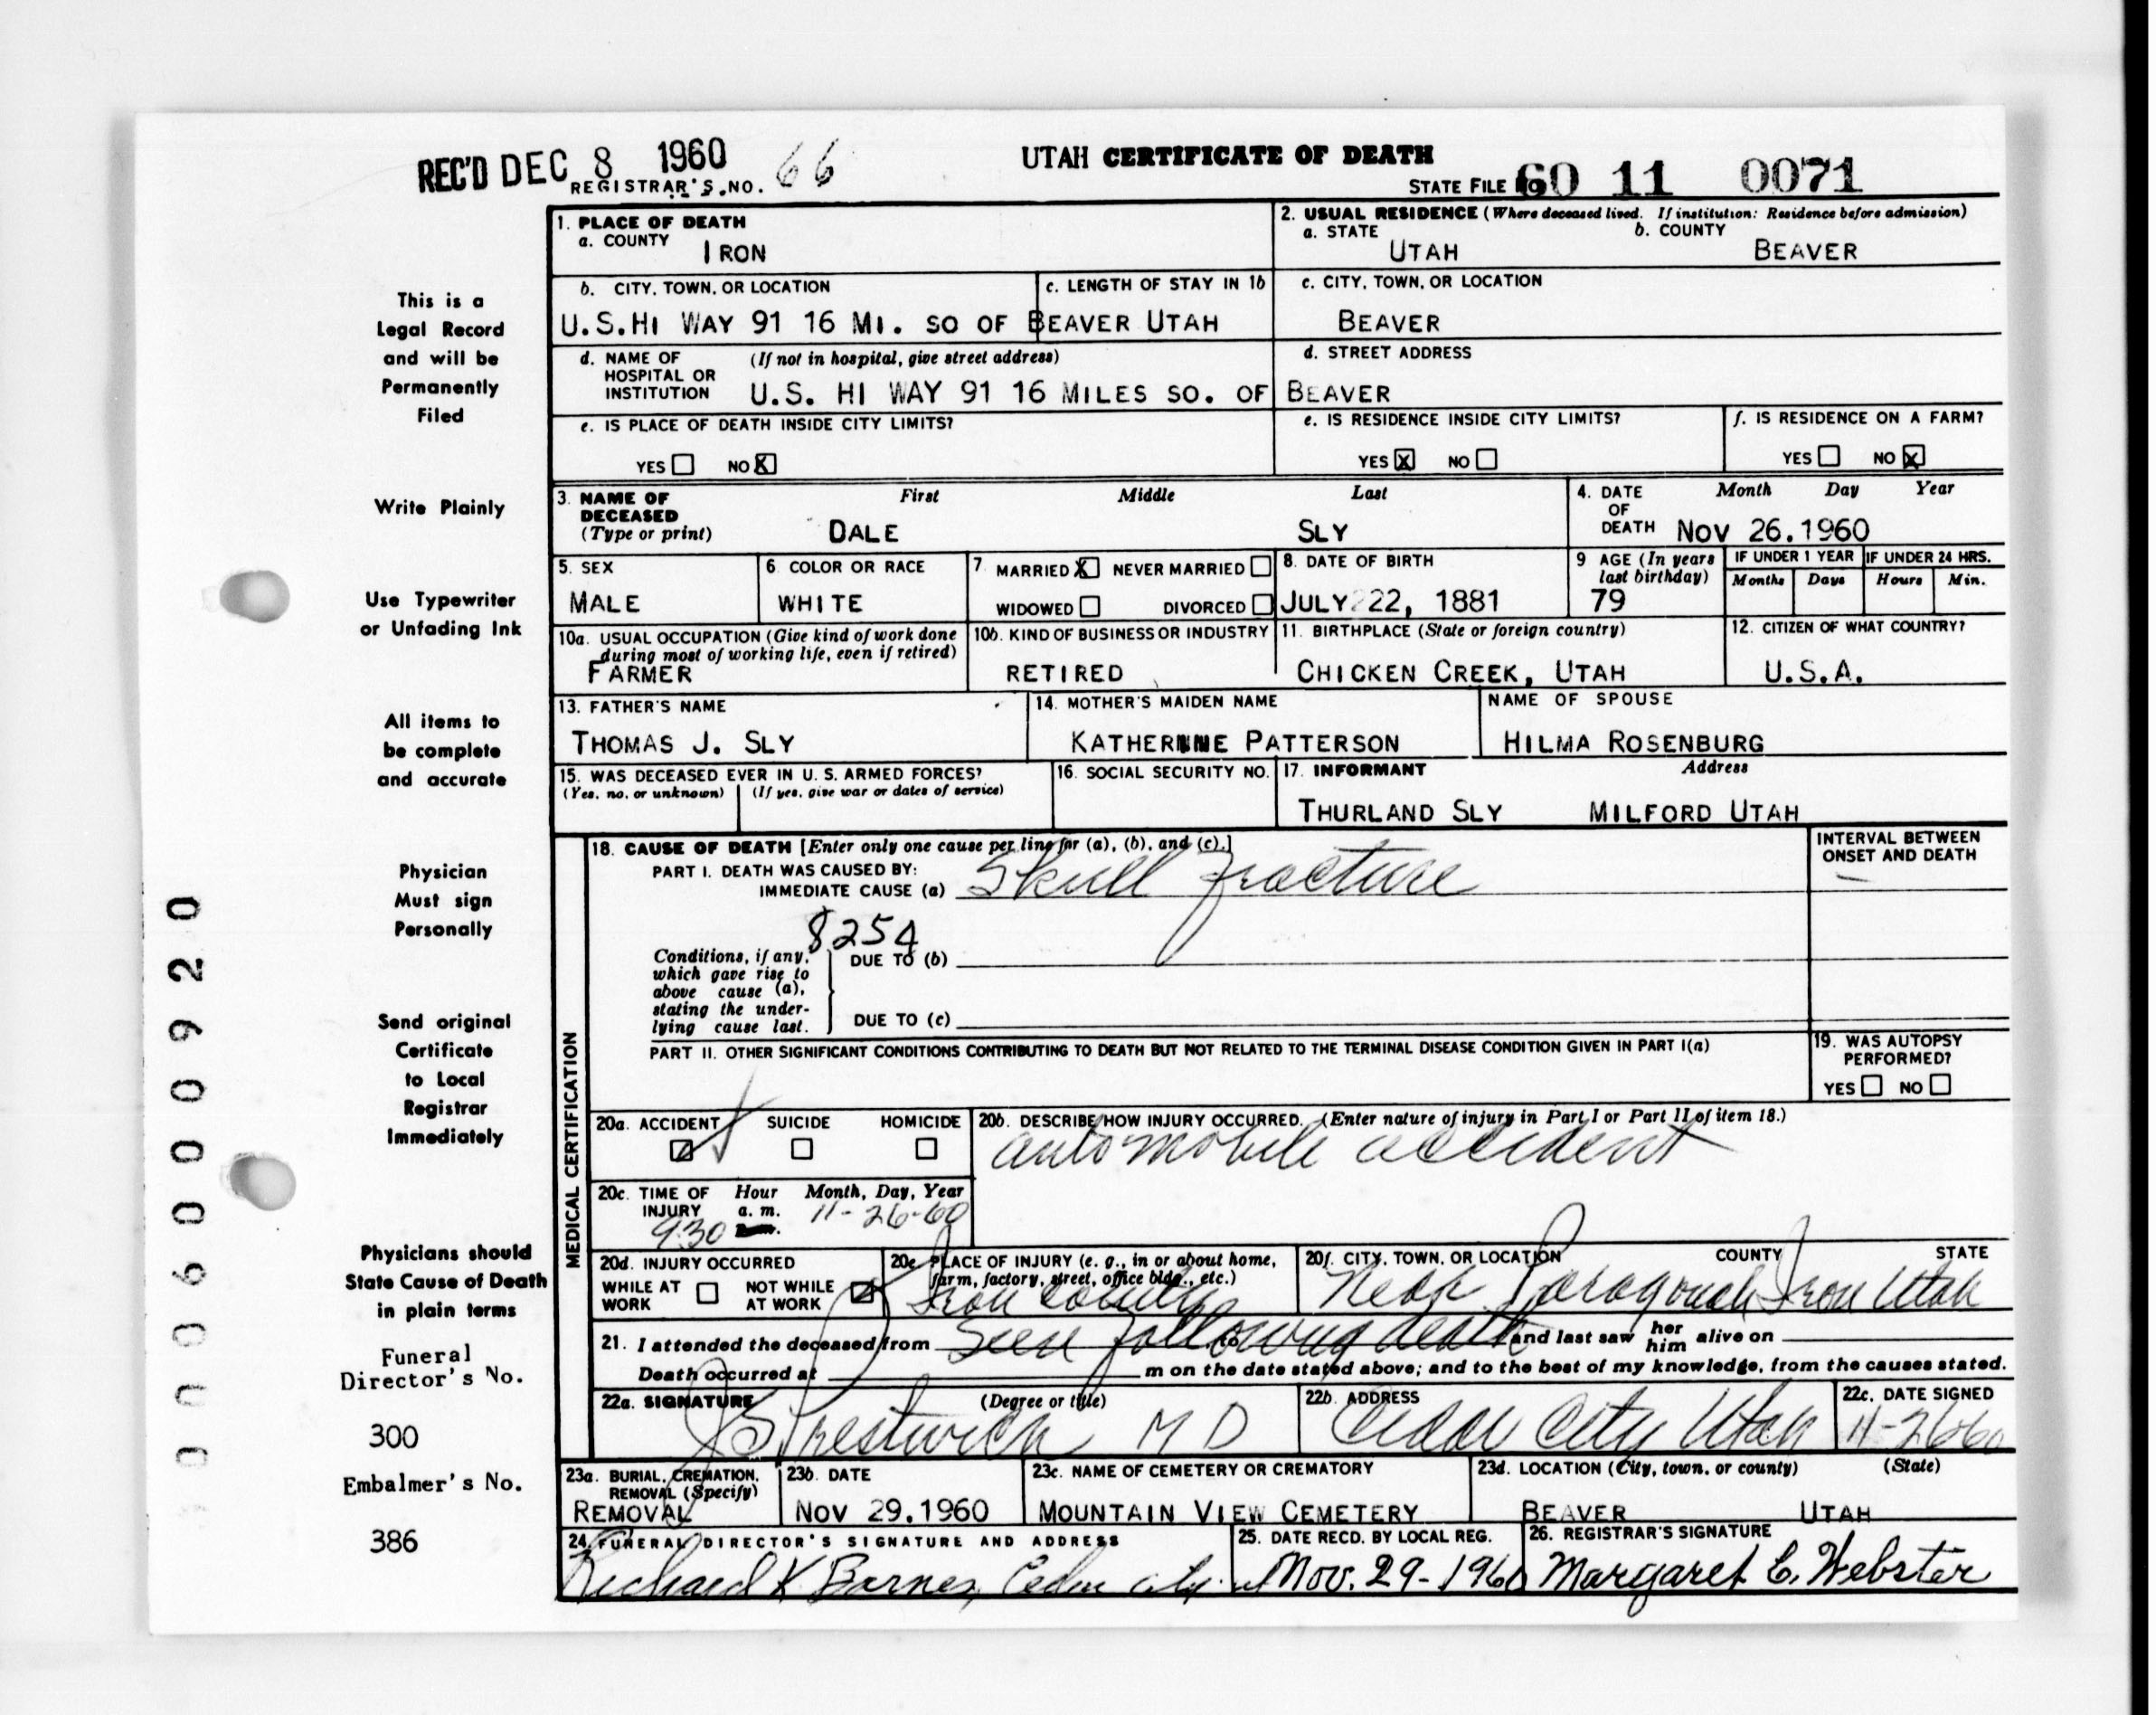 REC'D DEC 8 1960
REGISTRAR'S NO. 66
UTAH CERTIFICATE OF DEATH
STATE FILE 60 11 0071
This is a
Legal Record
and will be
Permanently
Filed
Write Plainly
Use Typewriter
or Unfading Ink
All items to
be complete
and accurate
Physician
Must sign
Personally
Send original
Certificate
to Local
Registrar
Immediately
Physicians should
State Cause of Death
in plain terms
Funeral
Director's No.
300
Embalmer's No.
386
0006000920
1. PLACE OF DEATH
a. COUNTY IRON
2. USUAL RESIDENCE (Where deceased lived. If institution: Residence before admission)
a. STATE UTAH b. COUNTY BEAVER
b. CITY, TOWN, OR LOCATION c. LENGTH OF STAY IN 1b
U.S.HI WAY 91 16 MI. SO OF BEAVER UTAH
c. CITY, TOWN, OR LOCATION
BEAVER
d. NAME OF HOSPITAL OR INSTITUTION (If not in hospital, give street address)
U.S. HI WAY 91 16 MILES SO. OF BEAVER
d. STREET ADDRESS
e. IS PLACE OF DEATH INSIDE CITY LIMITS?
YES NO X
e. IS RESIDENCE INSIDE CITY LIMITS?
YES X NO
f. IS RESIDENCE ON A FARM?
YES NO X
3. NAME OF DECEASED (Type or print) First Middle Last
DALE SLY
4. DATE OF DEATH Month Day Year
NOV 26.1960
5. SEX
MALE
6. COLOR OR RACE
WHITE
7. MARRIED X NEVER MARRIED
WIDOWED DIVORCED
8. DATE OF BIRTH
JULY 22, 1881
9 AGE (In years last birthday)
79
IF UNDER 1 YEAR IF UNDER 24 HRS.
Months Days Hours Min.
10a. USUAL OCCUPATION (Give kind of work done during most of working life, even if retired)
FARMER
10b. KIND OF BUSINESS OR INDUSTRY
RETIRED
11. BIRTHPLACE (State or foreign country)
CHICKEN CREEK, UTAH
12. CITIZEN OF WHAT COUNTRY?
U.S.A.
13. FATHER'S NAME
THOMAS J. SLY
14. MOTHER'S MAIDEN NAME
KATHERNNE PATTERSON
NAME OF SPOUSE
HILMA ROSENBURG
15. WAS DECEASED EVER IN U. S. ARMED FORCES?
(Yes, no, or unknown) (If yes, give war or dates of service)
16. SOCIAL SECURITY NO.
17. INFORMANT Address
THURLAND SLY MILFORD UTAH
MEDICAL CERTIFICATION
18. CAUSE OF DEATH [Enter only one cause per line for (a), (b), and (c).]
PART I. DEATH WAS CAUSED BY:
IMMEDIATE CAUSE (a) Skull fracture
INTERVAL BETWEEN ONSET AND DEATH
8254
Conditions, if any, which gave rise to above cause (a), stating the underlying cause last.
DUE TO (b)
DUE TO (c)
PART II. OTHER SIGNIFICANT CONDITIONS CONTRIBUTING TO DEATH BUT NOT RELATED TO THE TERMINAL DISEASE CONDITION GIVEN IN PART I(a)
19. WAS AUTOPSY PERFORMED?
YES NO
20a. ACCIDENT SUICIDE HOMICIDE
20b. DESCRIBE HOW INJURY OCCURRED. (Enter nature of injury in Part I or Part II of item 18.)
automobile accident
20c. TIME OF INJURY Hour Month, Day, Year
9:30 a. m. 11-26-60
20d. INJURY OCCURRED
WHILE AT WORK NOT WHILE AT WORK
20e. PLACE OF INJURY (e. g., in or about home, farm, factory, street, office bldg., etc.)
Iron County
20f. CITY, TOWN, OR LOCATION COUNTY STATE
Near Paragonah Iron Utah
21. I attended the deceased from Seen following death to and last saw her him alive on
Death occurred at m on the date stated above; and to the best of my knowledge, from the causes stated.
22a. SIGNATURE (Degree or title)
JS Prestwich MD
22b. ADDRESS
Cedar City Utah
22c. DATE SIGNED
11-26-60
23a. BURIAL, CREMATION, REMOVAL (Specify)
REMOVAL
23b. DATE
NOV 29.1960
23c. NAME OF CEMETERY OR CREMATORY
MOUNTAIN VIEW CEMETERY
23d. LOCATION (City, town, or county) (State)
BEAVER UTAH
24. FUNERAL DIRECTOR'S SIGNATURE AND ADDRESS
Richard K Barnes, Cedar City. ut
25. DATE RECD. BY LOCAL REG.
Nov. 29-1960
26. REGISTRAR'S SIGNATURE
Margaret C. Webster